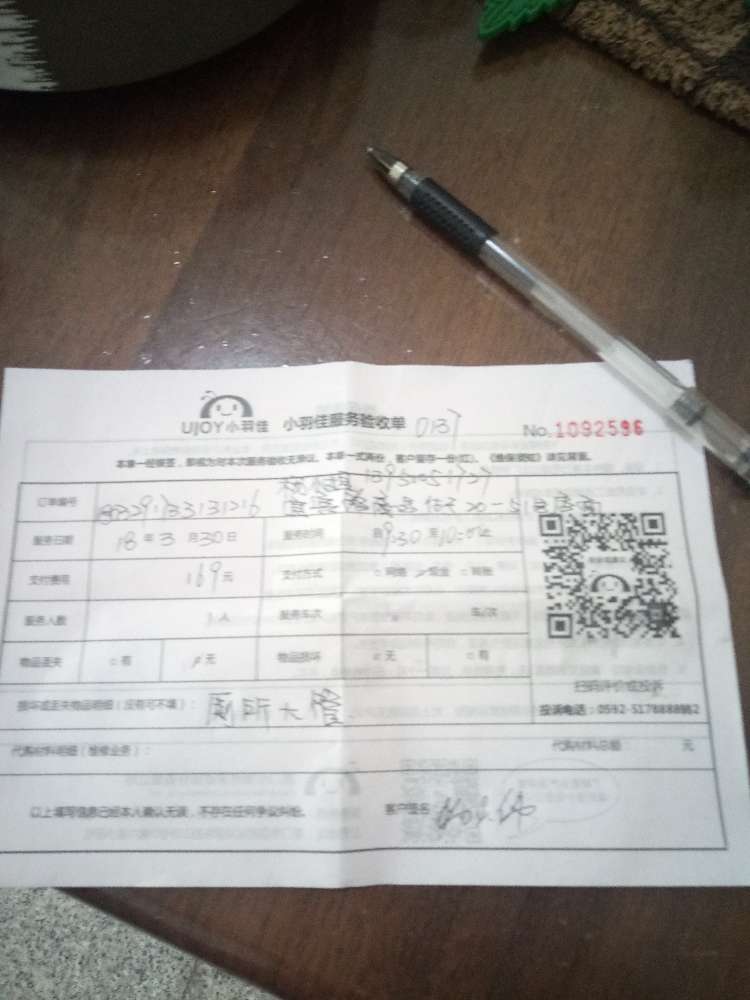 UJOY小羽佳 小羽佳服务验收单 0137 No.1092596
本单一经接签，即视为对本次服务验收无异议。本单一式两份，客户留存一份(红)，《维保须知》详见背面。
订单编号
服务日期 18年3月30日 服务时间 自9:30至10:00止
支付费用 169元 支付方式 网络 现金 转账
服务人数 1人 服务车次 车/次
物品丢失 有 无 物品损坏 无 有
扫码评价或投诉
损坏或丢失物品明细（没有可不填）： 厕所大管 投诉电话：0592-5178888862
代购材料明细（维修业务）： 代购材料总额 元
以上填写信息已经本人确认无误，不存在任何争议纠纷。 客户签名